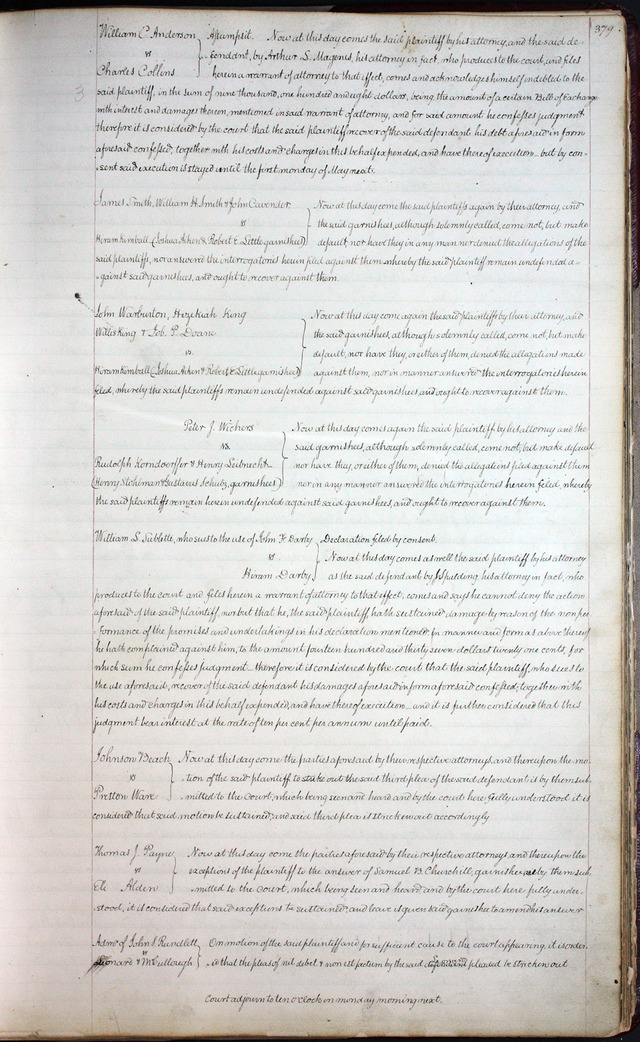 379
William C Anderson } Assumpsit. Now at this day comes the said plaintiff by his attorney, and the said de-
vs } fendant, by Arthur L. Magenis, his attorney in fact, who produces to the court, and files
Charles Collins } herein a warrant of attorney to that effect, comes and acknowledges himself indebted to the
said plaintiff, in the sum of nine thousand, one hundred and eight dollars, being the amount of a certain Bill of Exchange
with interest and damages thereon, mentioned in said warrant of attorney, and for said amount he confesses judgment
therefore it is considered by the court that the said plaintiff recover of the said defendant his debt aforesaid in form
aforesaid confessed, together with his costs and charges in this behalf expended, and have thereof execution. but by con-
-sent said execution is stayed until the first monday of May next.
3
James Smith, William H. Smith & John Cavender } Now at this day come the said plaintiffs again by their attorney, and
vs } the said garnishees, although solemnly called, come not, but make
Hiram Kimball (Joshua Aiken & Robert E Little garnishees) } default, nor have they in any manner denied the allegations of the
said plaintiffs, nor answered the interrogatories herein filed against them whereby the said plaintiff remain undefended a-
-gainst said garnishees, and ought to recover against them.
John Warburton, Hezekiah King } Now at this day come again the said plaintiffs by their attorney, and
Willis King & Job. P. Doane } the said garnishees, although solemnly called, come not, but make
vs. } default, nor have they, or either of them, denied the allegations made
Hiram Kimball (Joshua Aiken & Robert E Little garnishees) } against them, nor in manner answered the interrogatories herein
filed, whereby the said plaintiffs remain undefended against said garnishees, and ought to recover against them.
Peter J. Wichers } Now at this day comes again the said plaintiff by his attorney and the
vs } said garnishees, although solemnly called, come not, but make default
Rudolph Korndoerffer & Henry Leibrecht } nor have they, or either of them, denied the allegations filed against them
(Henry Stohlman & Gustavus Schutz, garnishees) } nor in any manner answered the interrogatories herein filed, whereby
the said plaintiffs remain herein undefended against said garnishees, and ought to recover against them.
William L. Sublette, who sues to the use of John F Darby } Declaration filed by consent.
vs } Now at this day comes as well the said plaintiff by his attorney
Hiram Darby } as the said defendant by Spalding, his attorney in fact, who
produces to the court and files herein a warrant of attorney to that effect, comes and says he cannot deny the action
aforesaid of the said plaintiff, nor but that he, the said plaintiff, hath sustained damage by reason of the non per
-formance of the promises and undertakings in his declaration mentioned in manner and form as above thereof
he hath complained against him, to the amount fourteen hundred and thirty seven dollars twenty one cents, for
which sum he confesses judgment— therefore it is considered by the court that the said plaintiff, who sues to
the use aforesaid, recover of the said defendant his damages aforesaid in form aforesaid confessed, together with
his costs and charges in this behalf expended, and have thereof execution— and it is further considered that this
judgment bear interest at the rate of ten per cent per annum until paid.
Johnson Beach } Now at this day come the parties aforesaid by their respective attorneys, and thereupon the mo-
vs } tion of the said plaintiff to strike out the said third plea of the said defendant is by them sub-
Preston Ware } -mitted to the Court, which being seen and heard and by the court here fully understood it is
considered that said motion be sustained, and said third plea is stricken out accordingly
Thomas J. Payne } Now at this day come the parties aforesaid by their respective attorneys, and thereupon the
vs } exceptions of the plaintiff to the answer of Samuel B. Churchill, garnishee, by them sub-
Eli Alden } -mitted to the Court, which being seen and heard, and by the court here fully under-
-stood, it is considered that said exceptions be sustained, and leave is given said garnishee to amend his answer
Admr of John S Rundlett } On motion of the said plaintiff and for sufficient cause to the court appearing, it is order-
vs
Leonard & McCullough } -ed that the pleas of nil debet & non est factum by the said pleaded be stricken out
Court adjourn to ten o'clock in monday morning next.